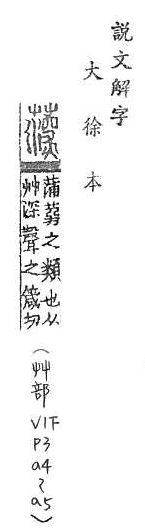 說文解字
大徐本
蒲蒻之類也从
艸深聲之箴切
（艸部 VI下 P3 a4〜a5）